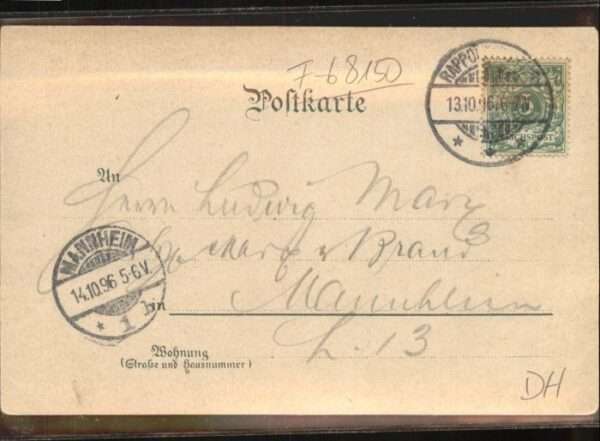 F-68150
Postkarte
RAPPO
13.10.96
REICHSPOST
An
Herrn Ludwig Marx
Marx & Brand
MANNHEIM
14.10.96 5-6V.
* 1
in
Mannheim
L. 13
Wohnung
(Straße und Hausnummer)
DH